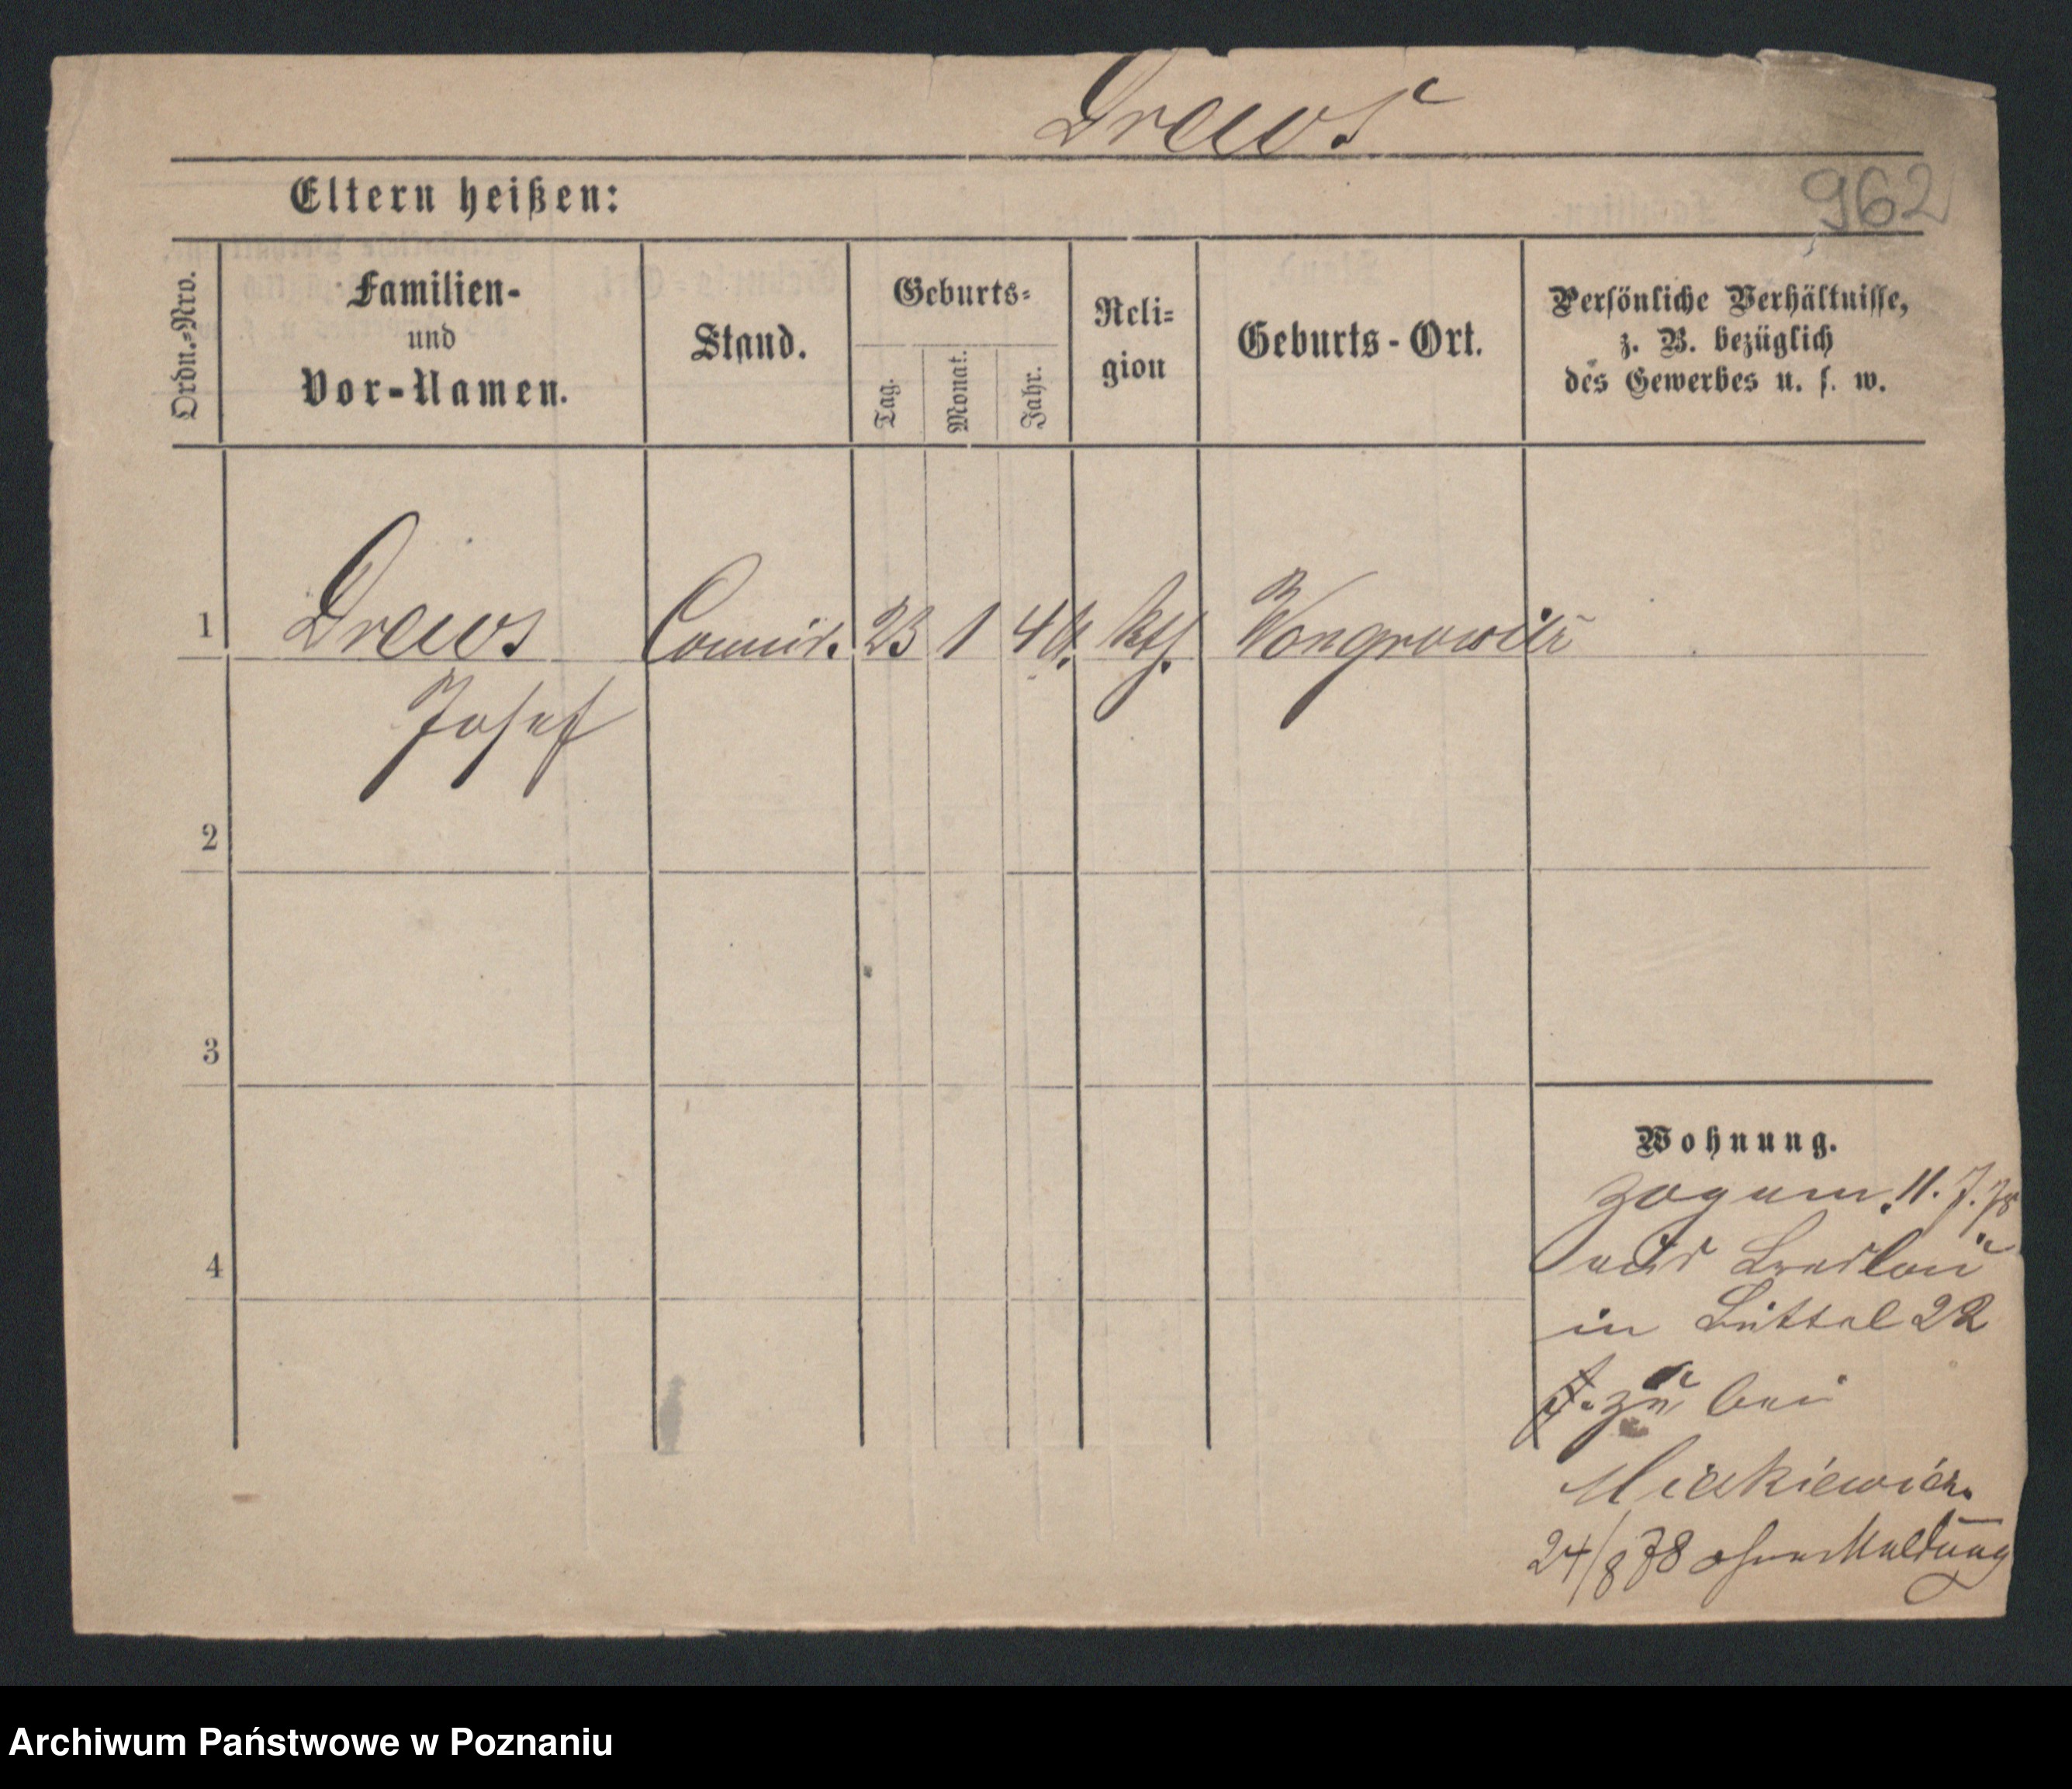 Drews
962
Eltern heißen:
Ordn.-Nro.
Familien-
und
Vor-Namen.
Stand.
Geburts-
Tag.
Monat.
Jahr.
Reli-
gion
Geburts-Ort.
Persönliche Verhältnisse,
z. B. bezüglich
des Gewerbes u. s. w.
1 Drews 23 1 kth. Wongrowitz
Josef
2
3
4
Wohnung.
zog am 11. 7. 78
aus Breslau
in Büttel 22
zu bei
24/8 78 ohne Meldung
Archiwum Państwowe w Poznaniu